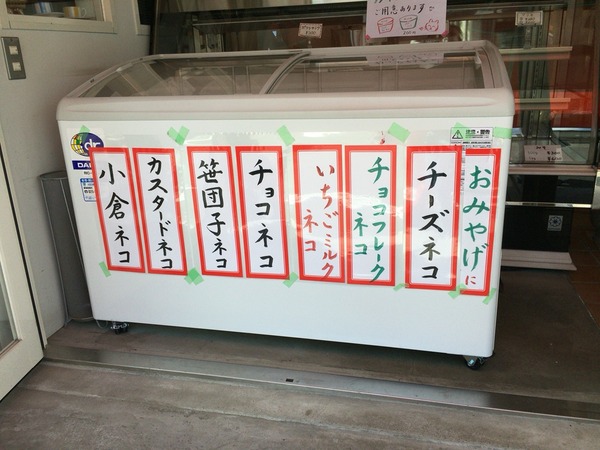 ご用意あります
おみやげに
チーズネコ
チョコフレークネコ
いちごミルクネコ
チョコネコ
笹団子ネコ
カスタードネコ
小倉ネコ